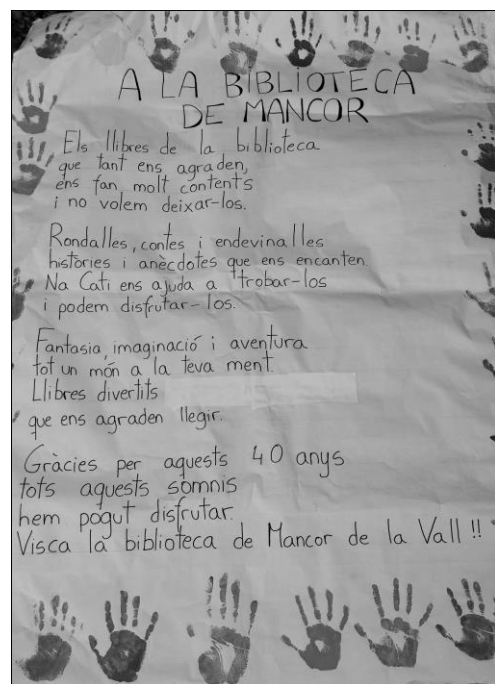 A LA BIBLIOTECA
DE MANCOR
Els llibres de la biblioteca
que tant ens agraden,
ens fan molt contents
i no volem deixar-los.
Rondalles, contes i endevinalles
històries i anècdotes que ens encanten.
Na Cati ens ajuda a trobar-los
i podem disfrutar-los.
Fantasia, imaginació i aventura
tot un món a la teva ment.
Llibres divertits
que ens agraden llegir.
Gràcies per aquests 40 anys
tots aquests somnis
hem pogut disfrutar.
Visca la biblioteca de Mancor de la Vall!!